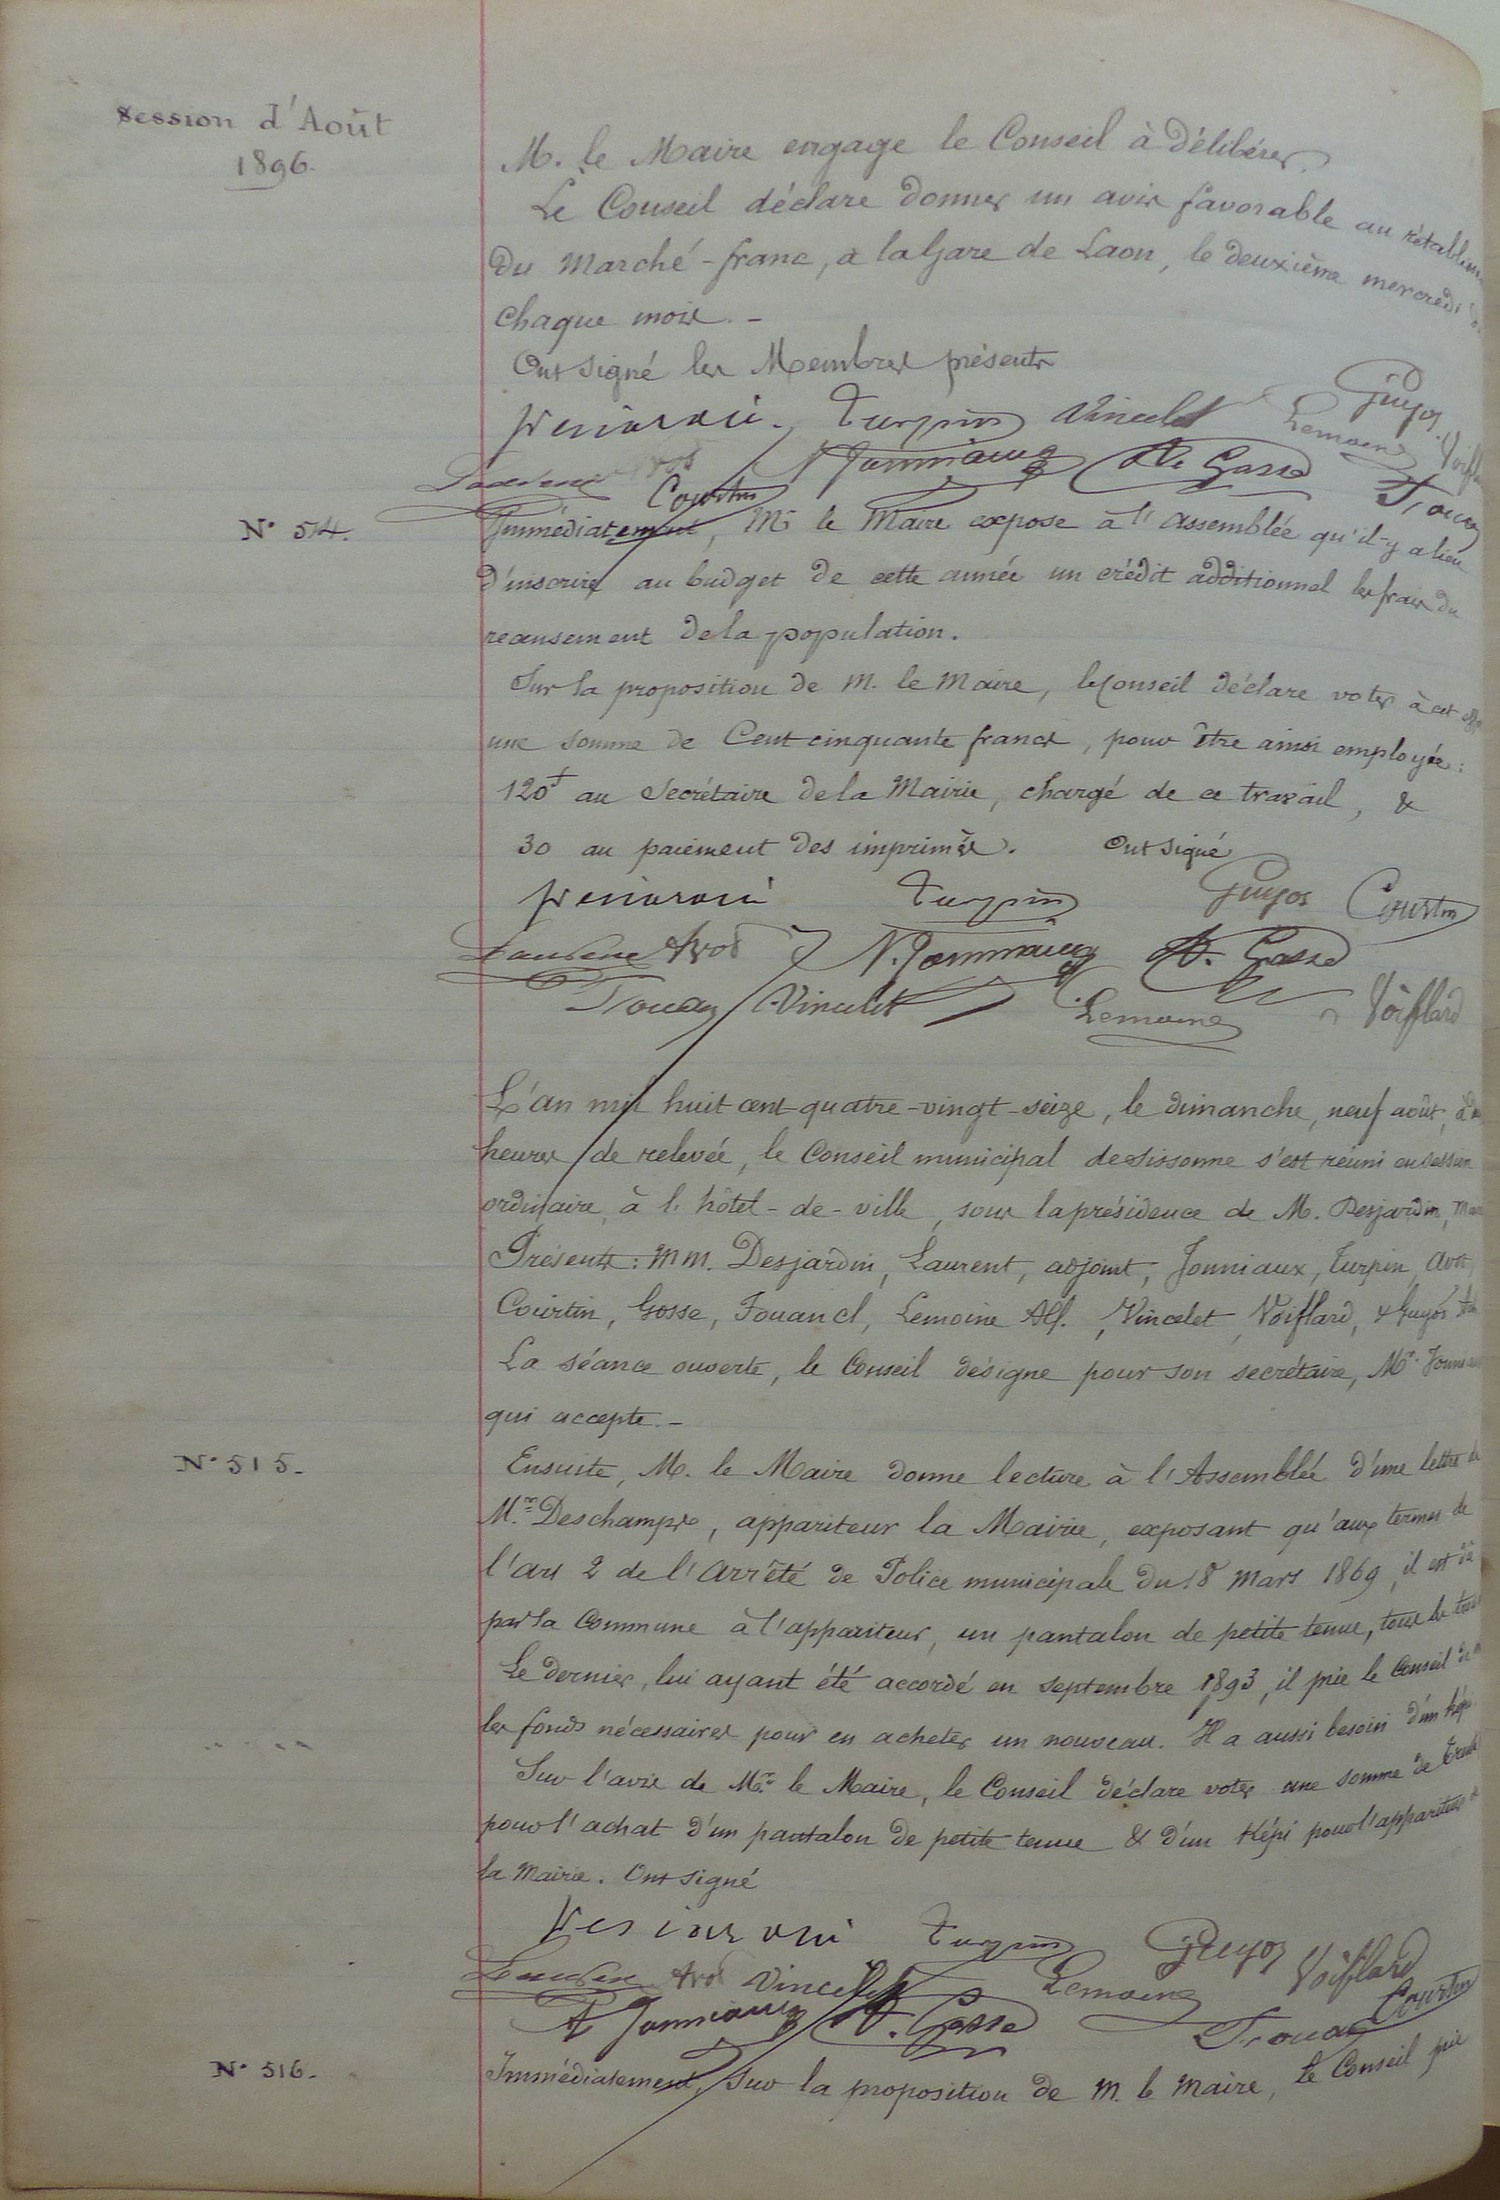 Session d'Août
1896.
M. le Maire engage le Conseil à délibérer.
Le Conseil déclare donner un avis favorable au
du Marché-franc, à la Gare de Laon, le deuxième mercredi
chaque mois. -
Ont signé les Membres présents
Turpin Vincelet Lemoine Guyot
Jonniaux Gosse
Courtin
N° 514.
Immédiatement, Mr le Maire expose à l'assemblée qu'il-y a lieu
d'inscrire au budget de cette année un crédit additionnel les frais du
recensement de la population.
Sur la proposition de M. le Maire, le Conseil déclare voter à cet
une somme de Cent cinquante francs, pour être ainsi employée :
120f au Secrétaire de la Mairie, chargé de ce travail, &
30 au paiement des imprimés. Ont signé
Turpin Guyot Courtin
N. Jonniaux Gosse
Vincelet Lemoine Voifflard
L'an mil huit cent quatre-vingt-seize, le dimanche, neuf août,
heures de relevée, le Conseil municipal de Sissonne s'est réuni en session
ordinaire, à l'hôtel-de-ville, sous la présidence de M. Desjardin,
Présents : MM. Desjardin, Laurent, adjoint, Jonniaux, Turpin,
Courtin, Gosse, Fouancl, Lemoine Alf., Vincelet, Voiflard, & Guyot
La séance ouverte, le Conseil désigne pour son secrétaire, Mr.
qui accepte. -
N° 515.
Ensuite, M. le Maire donne lecture à l'Assemblée d'une lettre de
Mr. Deschamps, appariteur la Mairie, exposant qu'aux termes de
l'art 2 de l'Arrêté de Police municipale du 18 mars 1869, il est dû
par la Commune à l'appariteur, un pantalon de petite tenue, tous les
Le dernier, lui ayant été accordé en septembre 1893, il prie le Conseil de
les fonds nécessaires pour en acheter un nouveau. Il a aussi besoin d'un képi
Sur l'avis de Mr. le Maire, le Conseil déclare voter une somme de
pour l'achat d'un pantalon de petite tenue & d'un Képi pour l'appariteur
la Mairie. Ont signé
Turpin Guyot
Vincelet Lemoine Voifflard
Jonniaux Gosse Courtin
N° 516.
Immédiatement, sur la proposition de M. le Maire, le Conseil prie